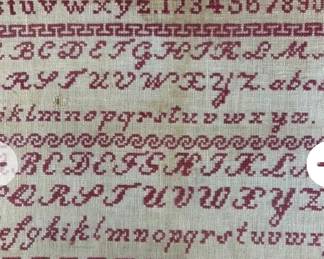 stuvwxyz.1234567890
BCDEFGHIKLM
RSTUVWXYZ.abc
iklmnopqrstuvwxyz.
BCDEFGHIKLM
QRSTUVWXYZ
efghiklmnopqrstuvwx